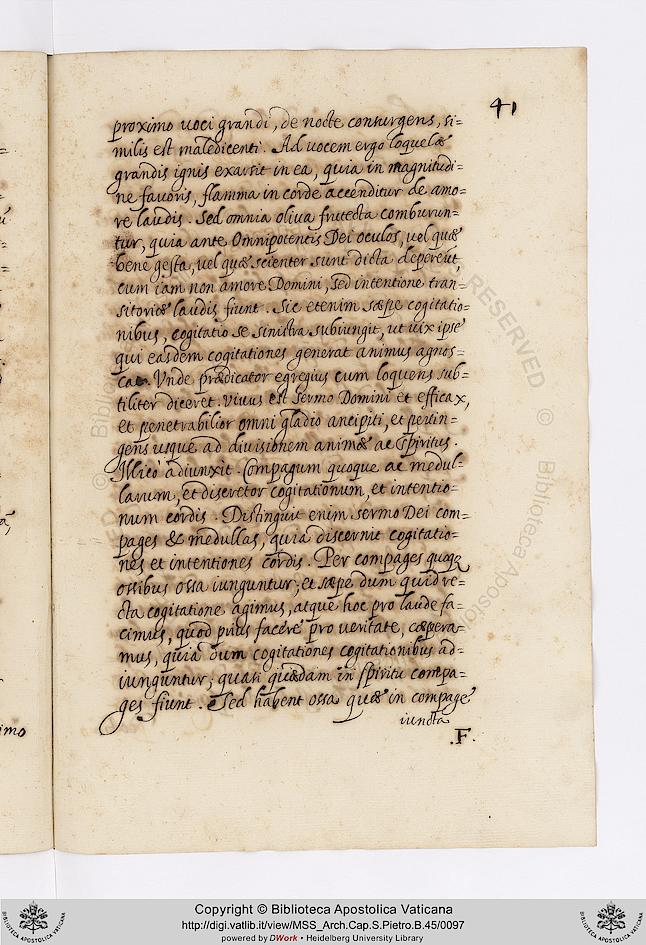 41
proximo voci grandi, de nocte consurgens, si=
milis est maledicenti. Ad vocem ergo loquelæ
grandis ignis exarsit in ea, quia in magnitudi=
ne favoris, flamma in corde accenditur de amo=
re laudis. Sed omnia oliva frutecta comburun=
tur, quia ante Omnipotentis Dei oculos, vel quæ
bene gesta, vel quæ scienter sunt dicta depereũt,
cum iam non amore Domini, sed intentione tran=
sitoriæ laudis fiunt. Sic etenim sæpe cogitatio=
nibus, cogitatio se sinistra subiungit, ut uix ipse
qui easdem cogitationes generat animus agnos=
cat. Vnde prædicator egregius cum loquens sub=
tiliter diceret. viuus est sermo Domini et efficax,
et penetrabilior omni gladio ancipiti, et pertin=
gens usque ad divisionem animæ ac Spiritus.
Illicò adiunxit. Compagum quoque ac medul=
larum, et discretor cogitationum, et intentio=
num cordis. Distinguit enim sermo Dei com=
pages & medullas, quia discernit cogitatio=
nes et intentiones cordis. Per compages quoqȝ
ossibus ossa iunguntur; et sæpe dum quid re=
cta cogitatione agimus, atque hoc pro laude fa=
cimus, quod prius facere pro veritate, cœpera=
mus, quia dum cogitationes cogitationibus ad=
iunguntur; quasi quædam in spiritu compa=
ges fiunt. Sed habent ossa quæ in compage
iuncta
.F.
Copyright © Biblioteca Apostolica Vaticana
http://digi.vatlib.it/view/MSS_Arch.Cap.S.Pietro.B.45/0097
powered by DWork • Heidelberg University Library